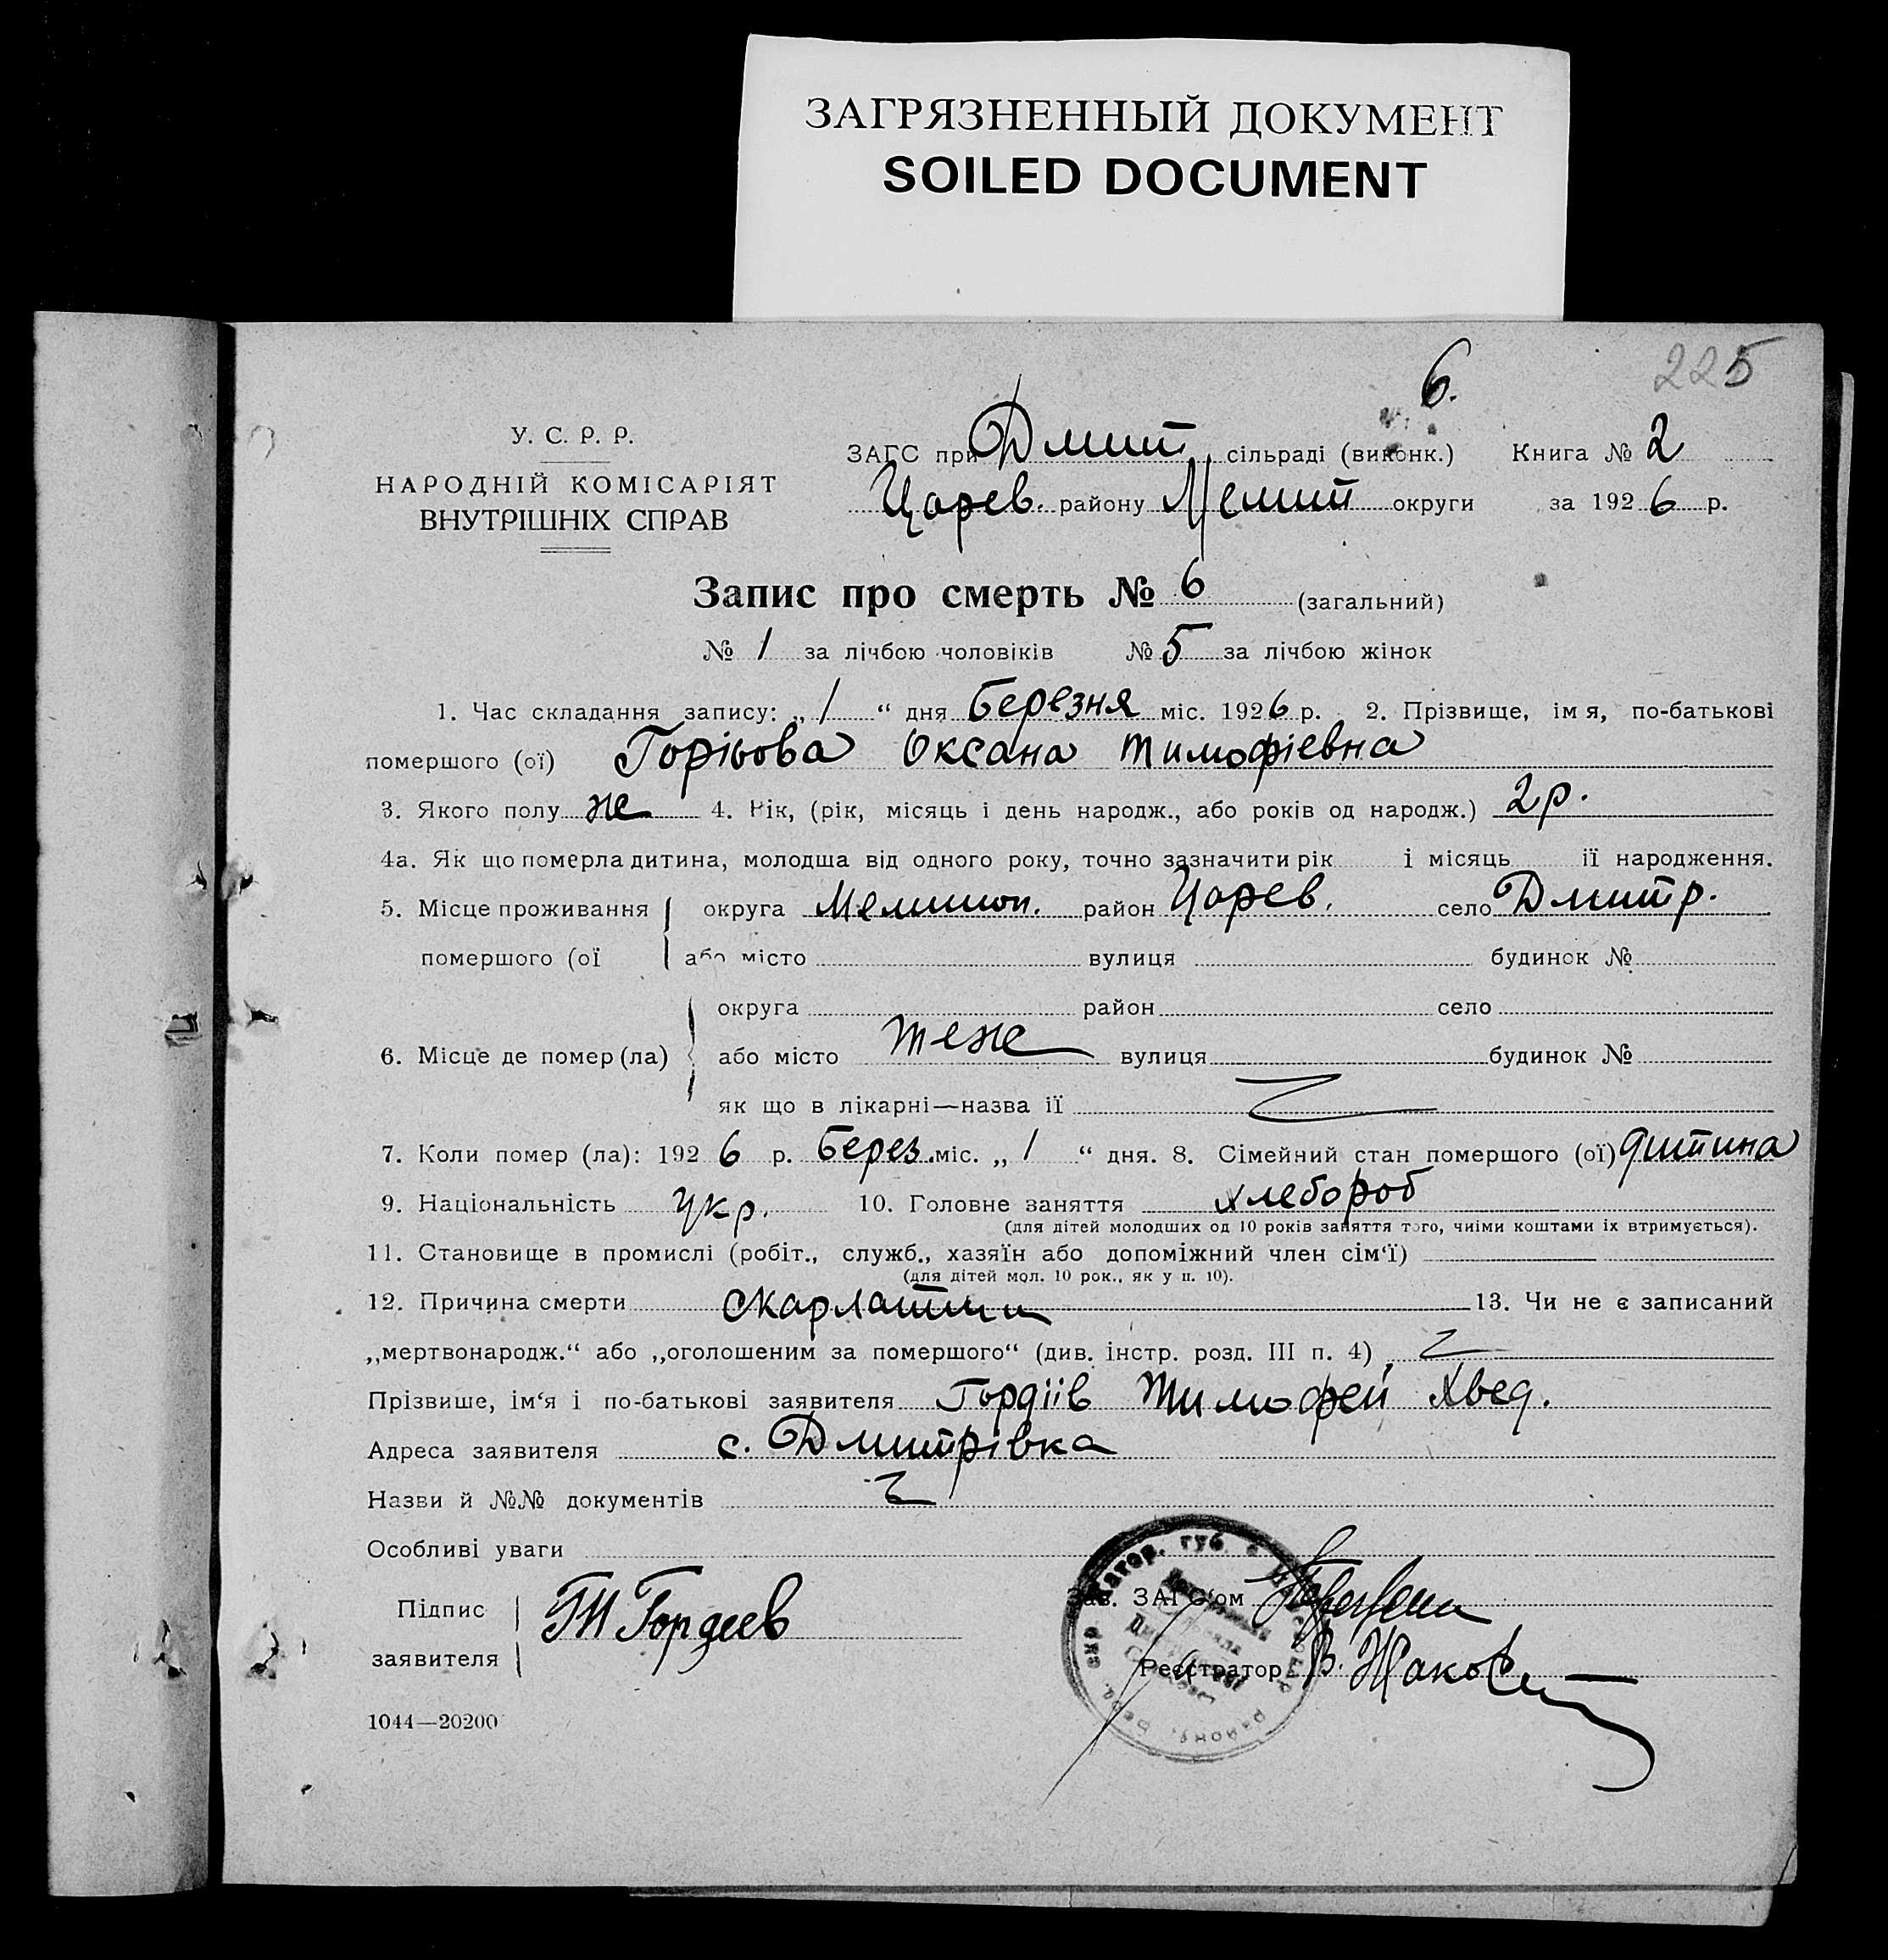 ЗАГРЯЗНЕННЫЙ ДОКУМЕНТ
SOILED DOCUMENT
6.
225
У. С. Р. Р.
НАРОДНІЙ КОМІСАРІЯТ
ВНУТРІШНІХ СПРАВ
ЗАГС при Дмит. сільраді (виконк.) Книга № 2
Царев. району Мелит округи за 1926 р.
Запис про смерть № 6 (загальний)
№ 1 за лічбою чоловіків № 5 за лічбою жінок
1. Час складання запису: „1“ дня березня міс. 1926 р. 2. Прізвище, імя, по-батькові
помершого (ої) Оксана Тимофіевна
3. Якого полу же 4. Рік, (рік, місяць і день народж., або років од народж.) 2 р.
4а. Як що померла дитина, молодша від одного року, точно зазначити рік і місяць її народження.
5. Місце проживання округа Мелитоп. район Царев. село Дмитр.
помершого (ої або місто вулиця будинок №
округа район село
6. Місце де помер (ла) або місто теже вулиця будинок №
як що в лікарні—назва її
7. Коли помер (ла): 1926 р. берез. міс. „1“ дня. 8. Сімейний стан помершого (ої) дитина
9. Національність укр. 10. Головне заняття хлебороб
(для дітей молодших од 10 років заняття того, чиїми коштами їх втримується).
11. Становище в промислі (робіт., служб., хазяїн або допоміжний член сім‘ї)
(для дітей мол. 10 рок., як у п. 10).
12. Причина смерти скарлатини 13. Чи не є записаний
„мертвонародж.“ або „оголошеним за помершого“ (див. інстр. розд. III п. 4)
Прізвише, ім‘я і по-батькові заявителя Гордіів Тимофей Хвед.
Адреса заявителя с. Дмитрівка
Назви й №№ документів
Особливі уваги
Підпис
заявителя
Т Гордеев
Зав. ЗАГС‘ом
Реєстратор В.
1044—20200